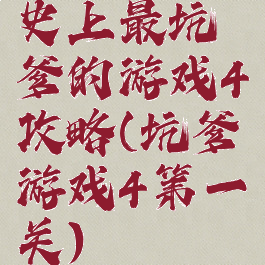 史上最坑
爹的游戏4
攻略(坑爹
游戏4第一
关)